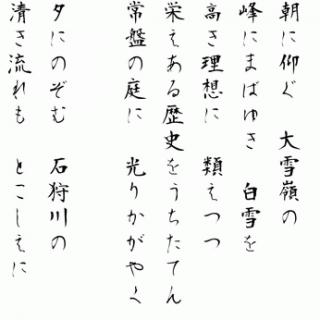 朝に仰ぐ 大雪嶺の
峰にまばゆき 白雪を
高き理想に 類えつつ
栄えある歴史をうちたてん
常盤の庭に 光りかがやく
夕にのぞむ 石狩川の
清き流れも とこしえに